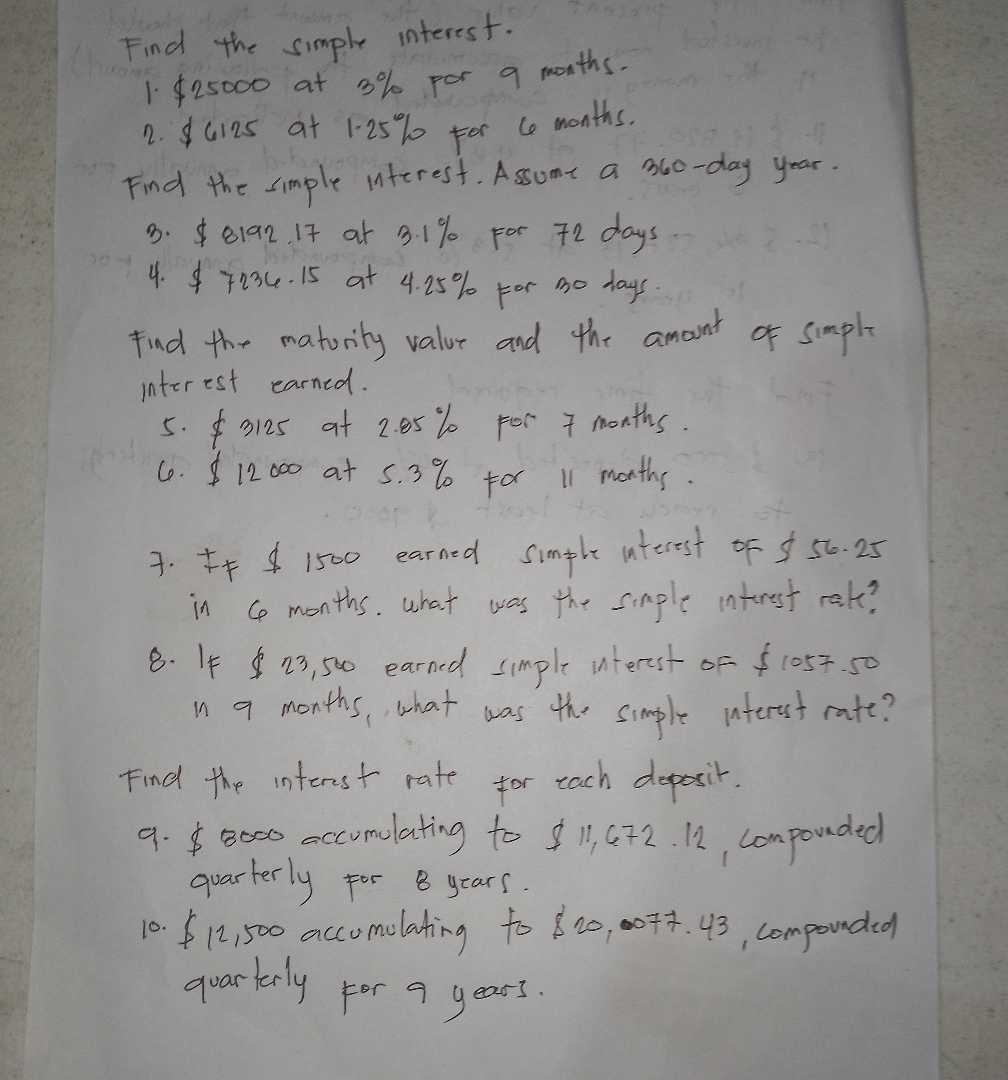 Find the simple interest.
1. $25000 at 3% for 9 months.
2. $6125 at 1.25% for 6 months.
Find the simple interest. Assume a 360-day year.
3. $8192.17 at 3.1% for 72 days
4. $7236.15 at 4.25% for 30 days.
Find the maturity value and the amount of simple
interest earned.
5. $3125 at 2.85% for 7 months.
6. $12000 at 5.3% for 11 months.
7. If $1500 earned simple interest of $56.25
in 6 months. what was the simple interest rate?
8. If $23,500 earned simple interest of $1057.50
in 9 months, what was the simple interest rate?
Find the interest rate for each deposit.
9. $8000 accumulating to $11,672.12, compounded
quarterly for 8 years.
10. $12,500 accumulating to $20,077.43, compounded
quarterly for 9 years.